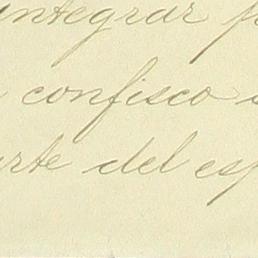 integrar p
confisco
arte del esp